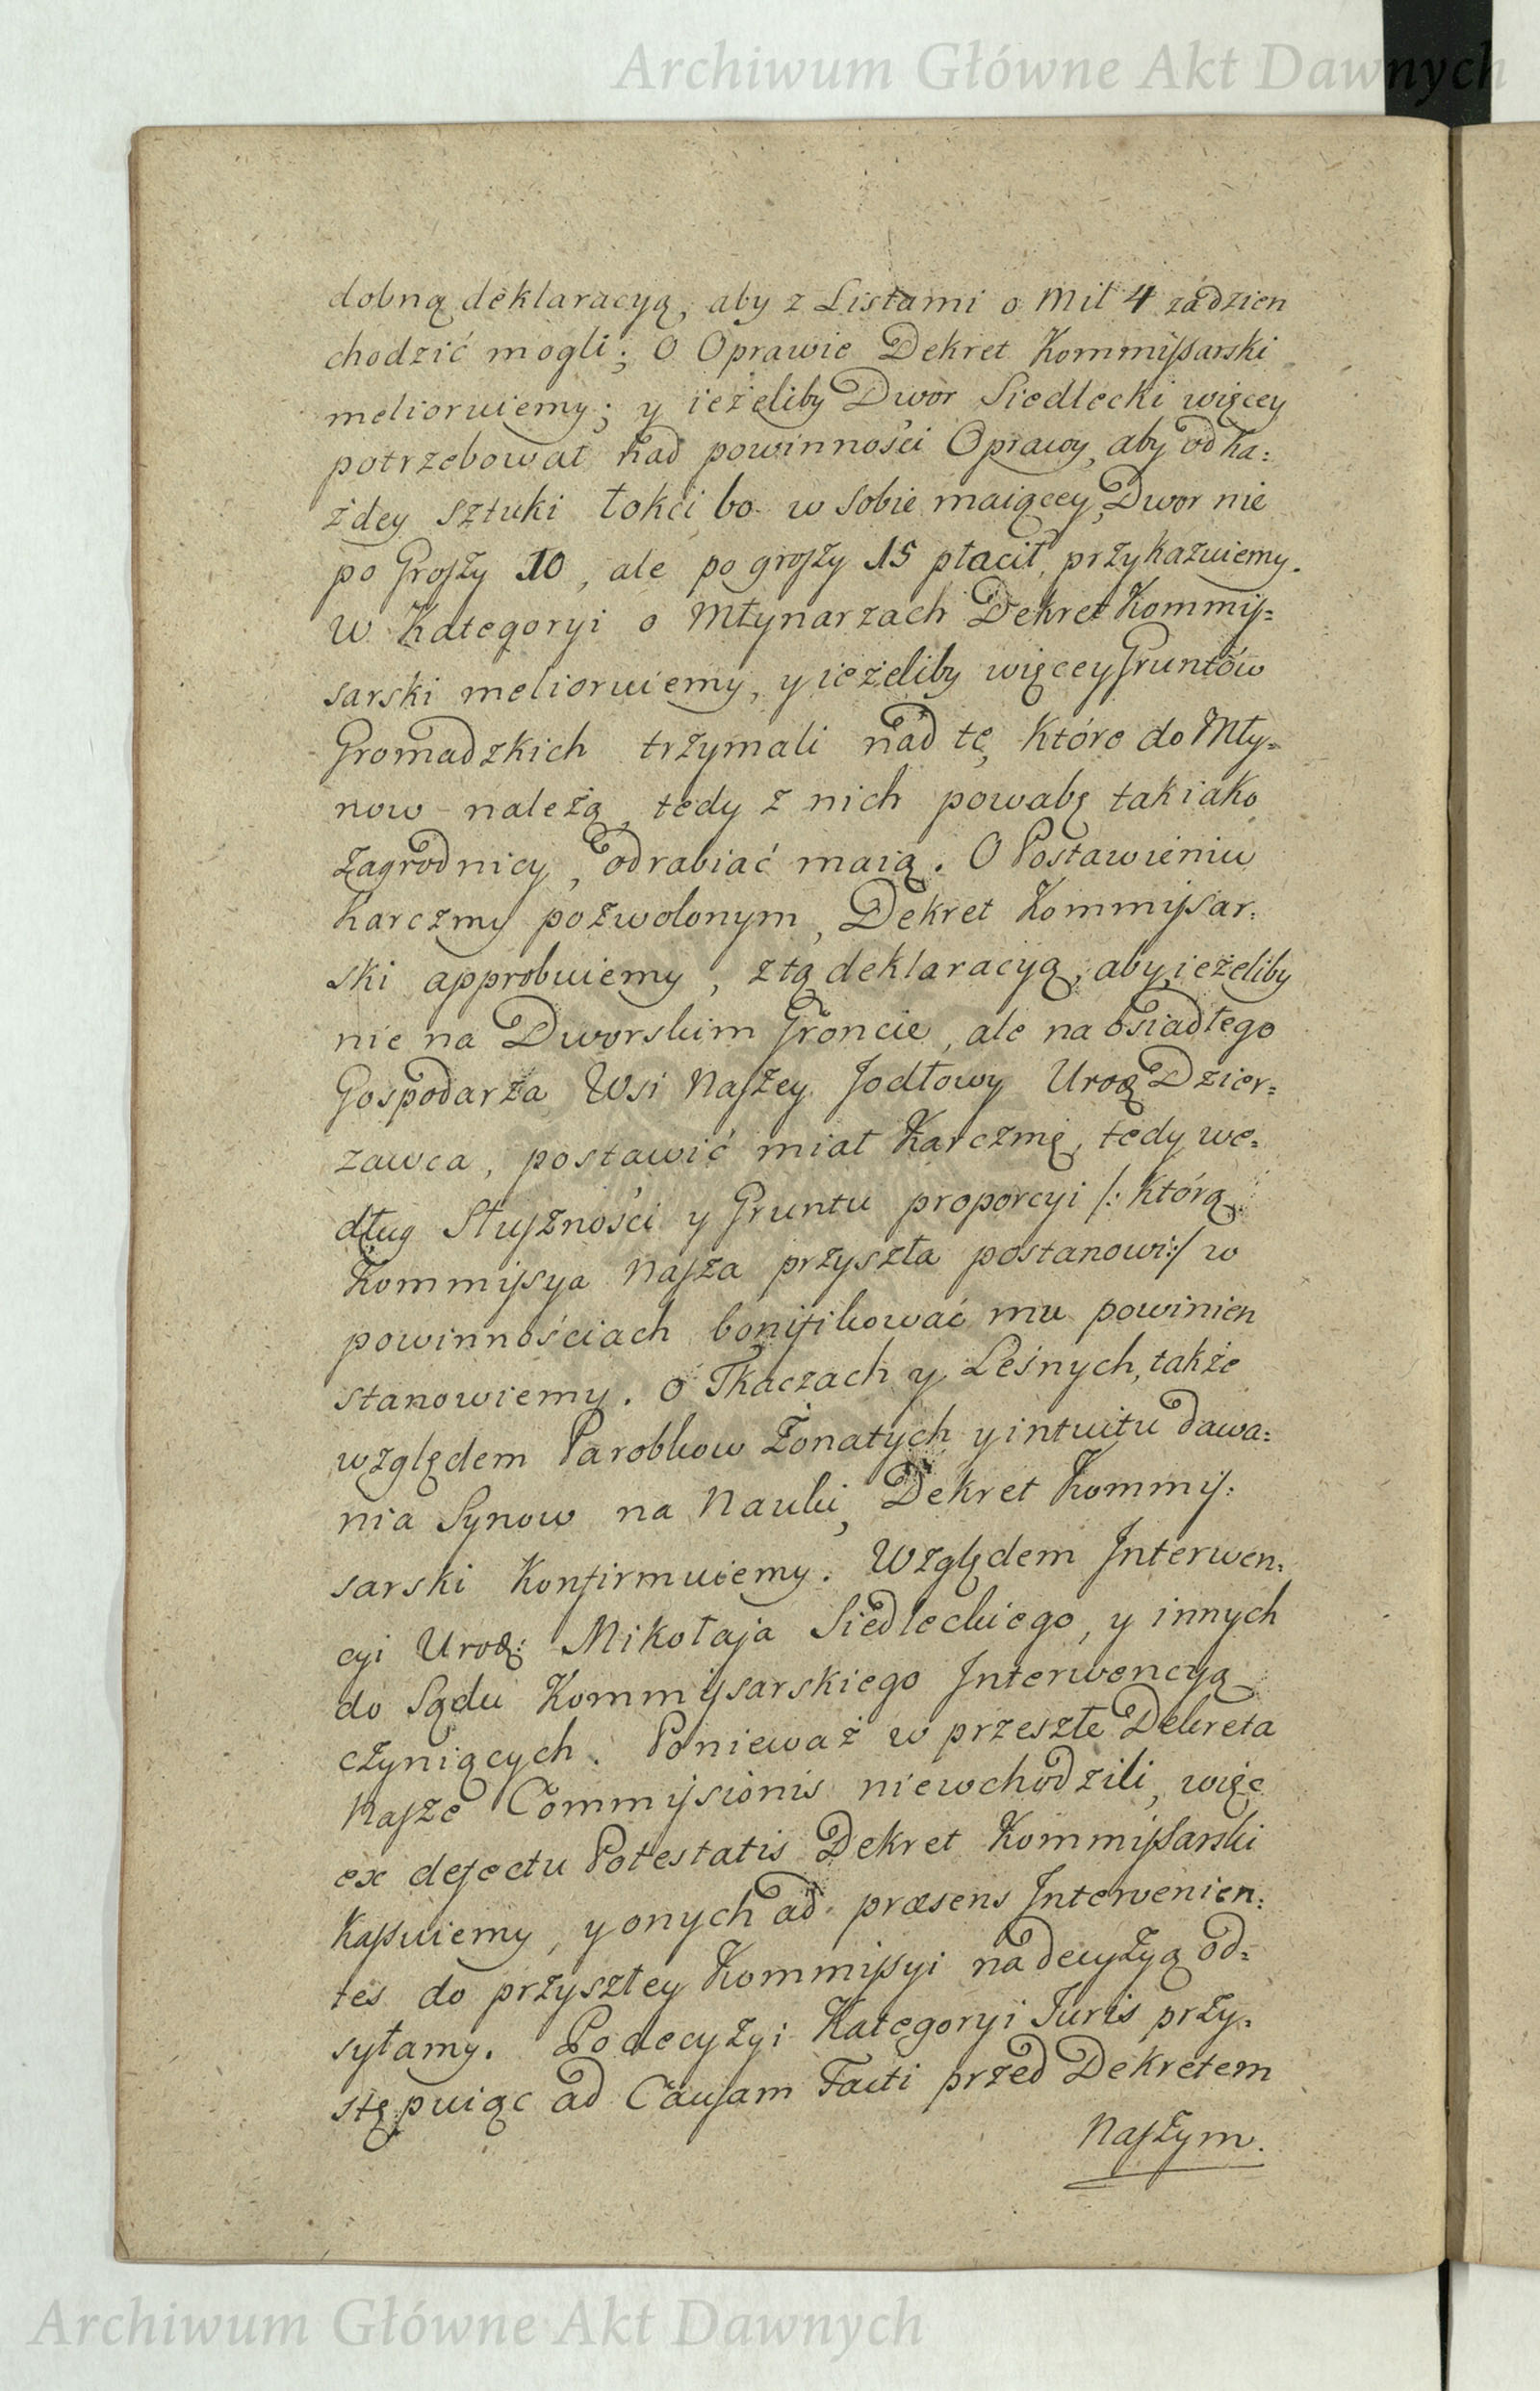 Archiwum Główne Akt Dawnych
dobną deklaracyą, aby z Listami o Mil 4 zadzien
chodzić mogli; O Oprawie Dekret Kommissarski
meliorujemy; y ieżeliby Dwor Siedlecki więcey
potrzebował nad powinności Oprawy, aby od ka:
żdey sztuki łokci 60 w sobie maiącey, Dwor nie
po Groszy 10, ale po groszy 15 płacił, przykazuiemy.
W Kategoryi o Młynarzach Dekret Kommis=
sarski melioruiemy, y ieżeliby więcey Gruntów
Gromadzkich trzymali nad te, które do Mły=
now należą, tedy z nich powabę tak iako
Zagrodnicy, odrabiać maią. O Postawieniu
Karczmy pozwolonym, Dekret Kommissar:
ski approbuiemy, z tą deklaracyą, aby ieżeliby
nie na Dworskim Groncie, ale na osiadłego
Gospodarza Wsi Naszey Jodłowy Urod Dzier=
zawca, postawić miał Karczmę, tedy we=
dług Słuszności y Gruntu proporcyi /: którą
Kommissya Nasza przyszła postanowi:/ w
powinnościach bonifikować mu powinien
stanowiemy. O Tkaczach y Leśnych, także
względem Parobkow Żonatych y intuitu dawa=
nia Synow na Nauki, Dekret Kommis:
sarski Konfirmuiemy. Względem Interwen:
cyi Urod: Mikołaja Siedleckiego, y innych
do Sądu Kommissarskiego Interwencyą
czyniących. Ponieważ w przeszłe Dekreta
Nasze Commissionis niewchodzili, więc
ex defectu Potestatis Dekret Kommissarski
Kassuiemy, y onych ad præsens Intervenien:
tes do przyszłey Kommissyi na decyzyą od=
syłamy. Po decyzyi Kategoryi Juris przy=
stępuiąc ad Causam Facti przed Dekretem
Naszym.
Archiwum Główne Akt Dawnych